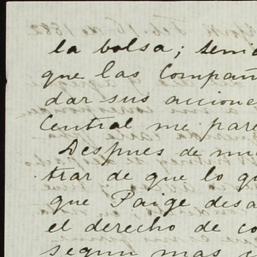 la bolsa; seni
que las Compañ
dar sus accione
Central me pare
Despues de mu
trar de que lo qu
que Paige desa
el derecho de co
segun mas